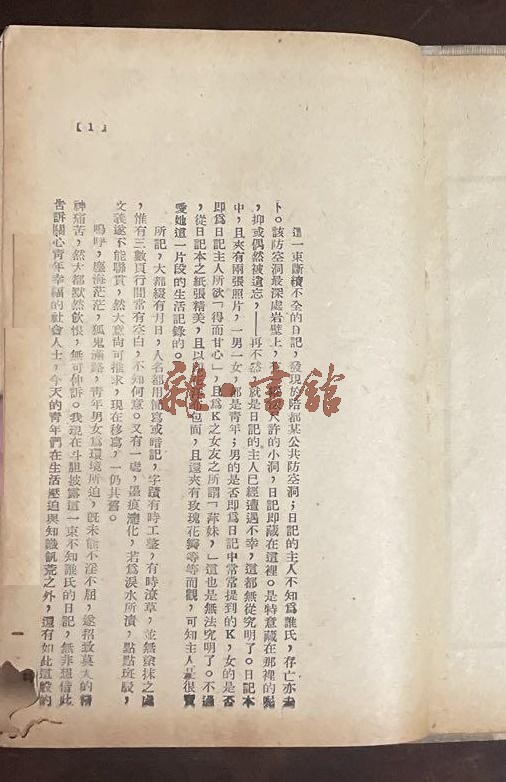 這一束斷續不全的日記,發現於陪都某公共防空洞;日記的主人不知爲誰氏,存亡亦未
卜。該防空洞最深處岩壁上,有尺許的小洞,日記即藏在這裡。是特意藏在那裡的呢
,抑或偶然被遺忘,——再不然,就是日記的主人已經遭遇不幸,這都無從究明了。日記本
中,且夾有兩張照片,一男一女,都是青年;男的是否即爲日記中常常提到的K,女的是否
即爲日記主人所欲「得而甘心」,且爲K之女友之所謂「萍妹」,這也是無法究明了。不過
,從日記本之紙張精美,且以包面,且還夾有玫瑰花瓣等等而觀,可知主人是很寶
愛她這一片段的生活記錄的。
所記,大都綴有月日,人名都用簡寫或暗記,字蹟有時工整,有時潦草,並無塗抹之處
,惟有三數頁行間常有空白,不知何意。又有一處,墨痕漶化,若爲淚水所漬,點點斑駁,
文義遂不能聯貫,然大意尚可推求,現在移寫,一仍其舊。
嗚呼,塵海茫茫,狐鬼滿路,青年男女爲環境所迫,旣未能不淫不屈,遂招致莫大的精
神痛苦,然大都默然飲恨,無可伸訴。我現在斗胆披露這一束不知誰氏的日記,無非想借此
告訴關心青年幸福的社會人士,今天的青年們在生活壓迫與知識飢荒之外,還有如此這般的
【1】
書館